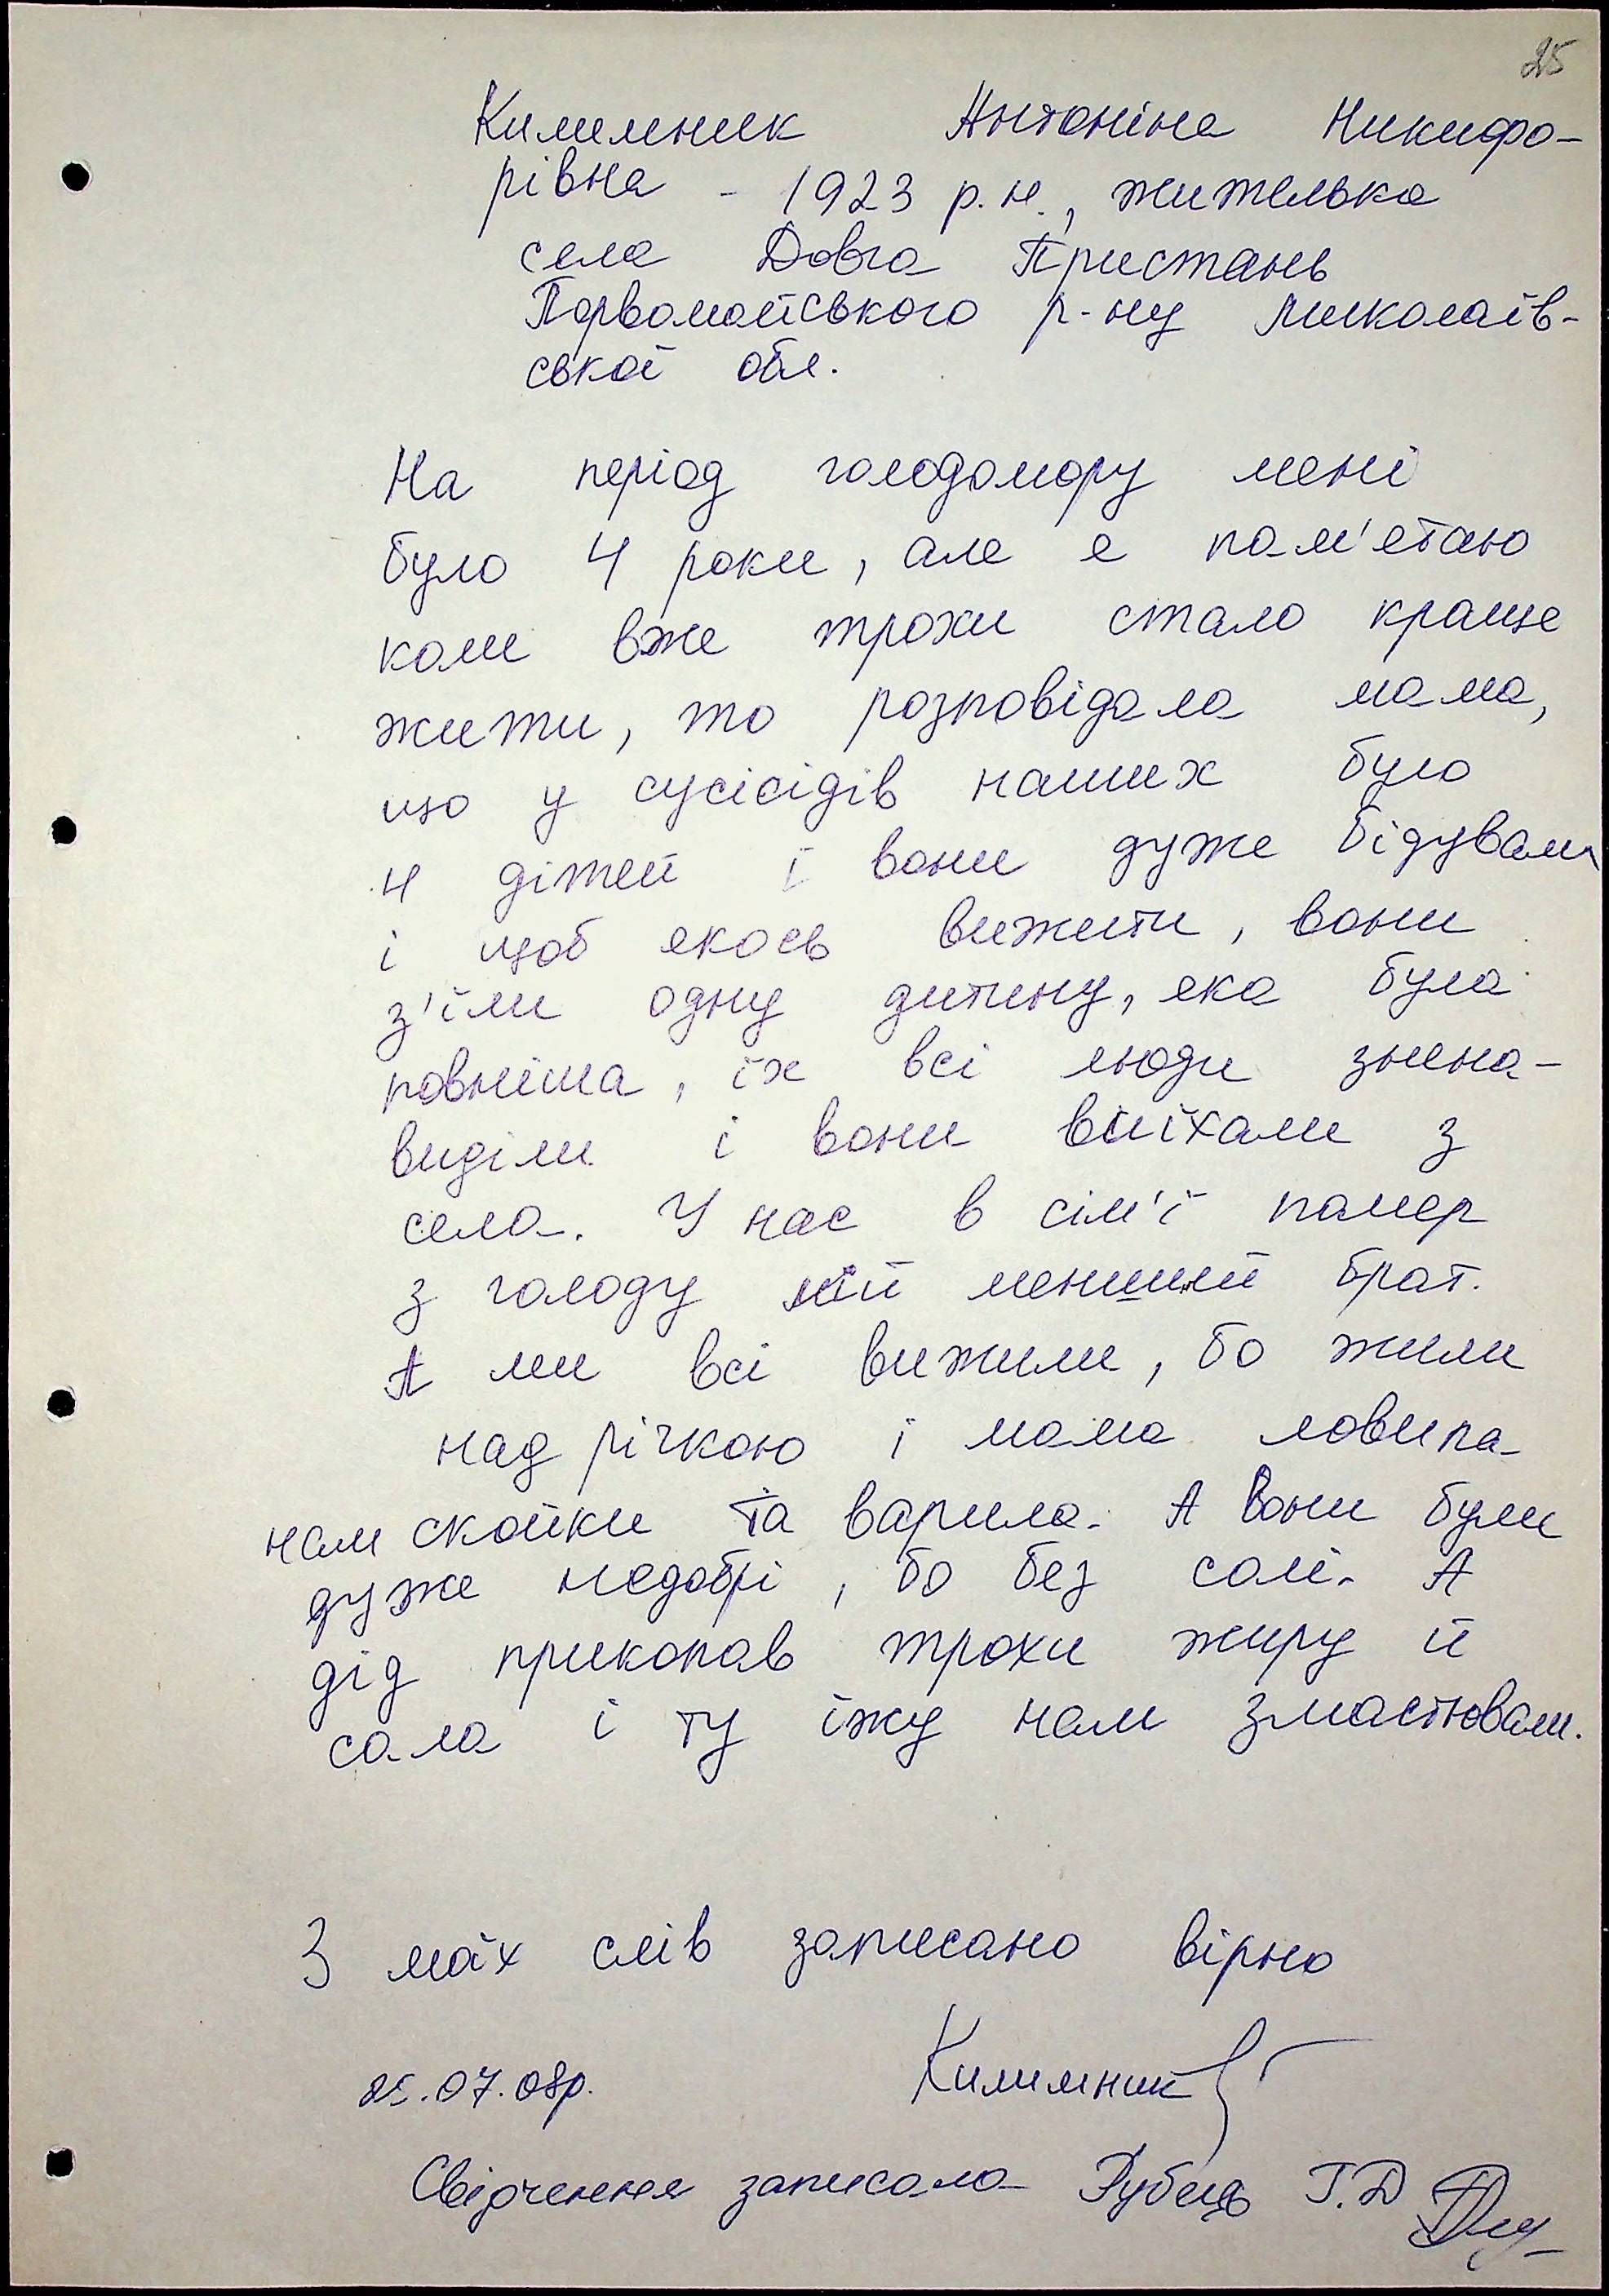 25
Килимник Антоніна Никифо-
рівна - 1923 р.н., жителька
села Довга Пристань
Первомайського р-ну Миколаїв-
ської обл.
На період голодомору мені
було 4 роки, але я пам'ятаю
коли вже трохи стало краще
жити, то розповідала мама,
що у сусісідів наших було
4 дітей і вони дуже бідували
і щоб якось вижити, вони
з'їли одну дитину, яка була
повніша, їх всі люди знена-
виділи і вони виїхали з
села. У нас в сім'ї помер
з голоду мій менший брат.
А ми всі вижили, бо жили
над річкою і мама ловила
нам скойки та варила. А вони були
дуже недобрі, бо без солі. А
дід прикопав трохи жиру й
сала і ту їжу нам змастювали.
З моїх слів записано вірно
25.07.08р. Килимник
Свідчення записала Рубець Г.Д